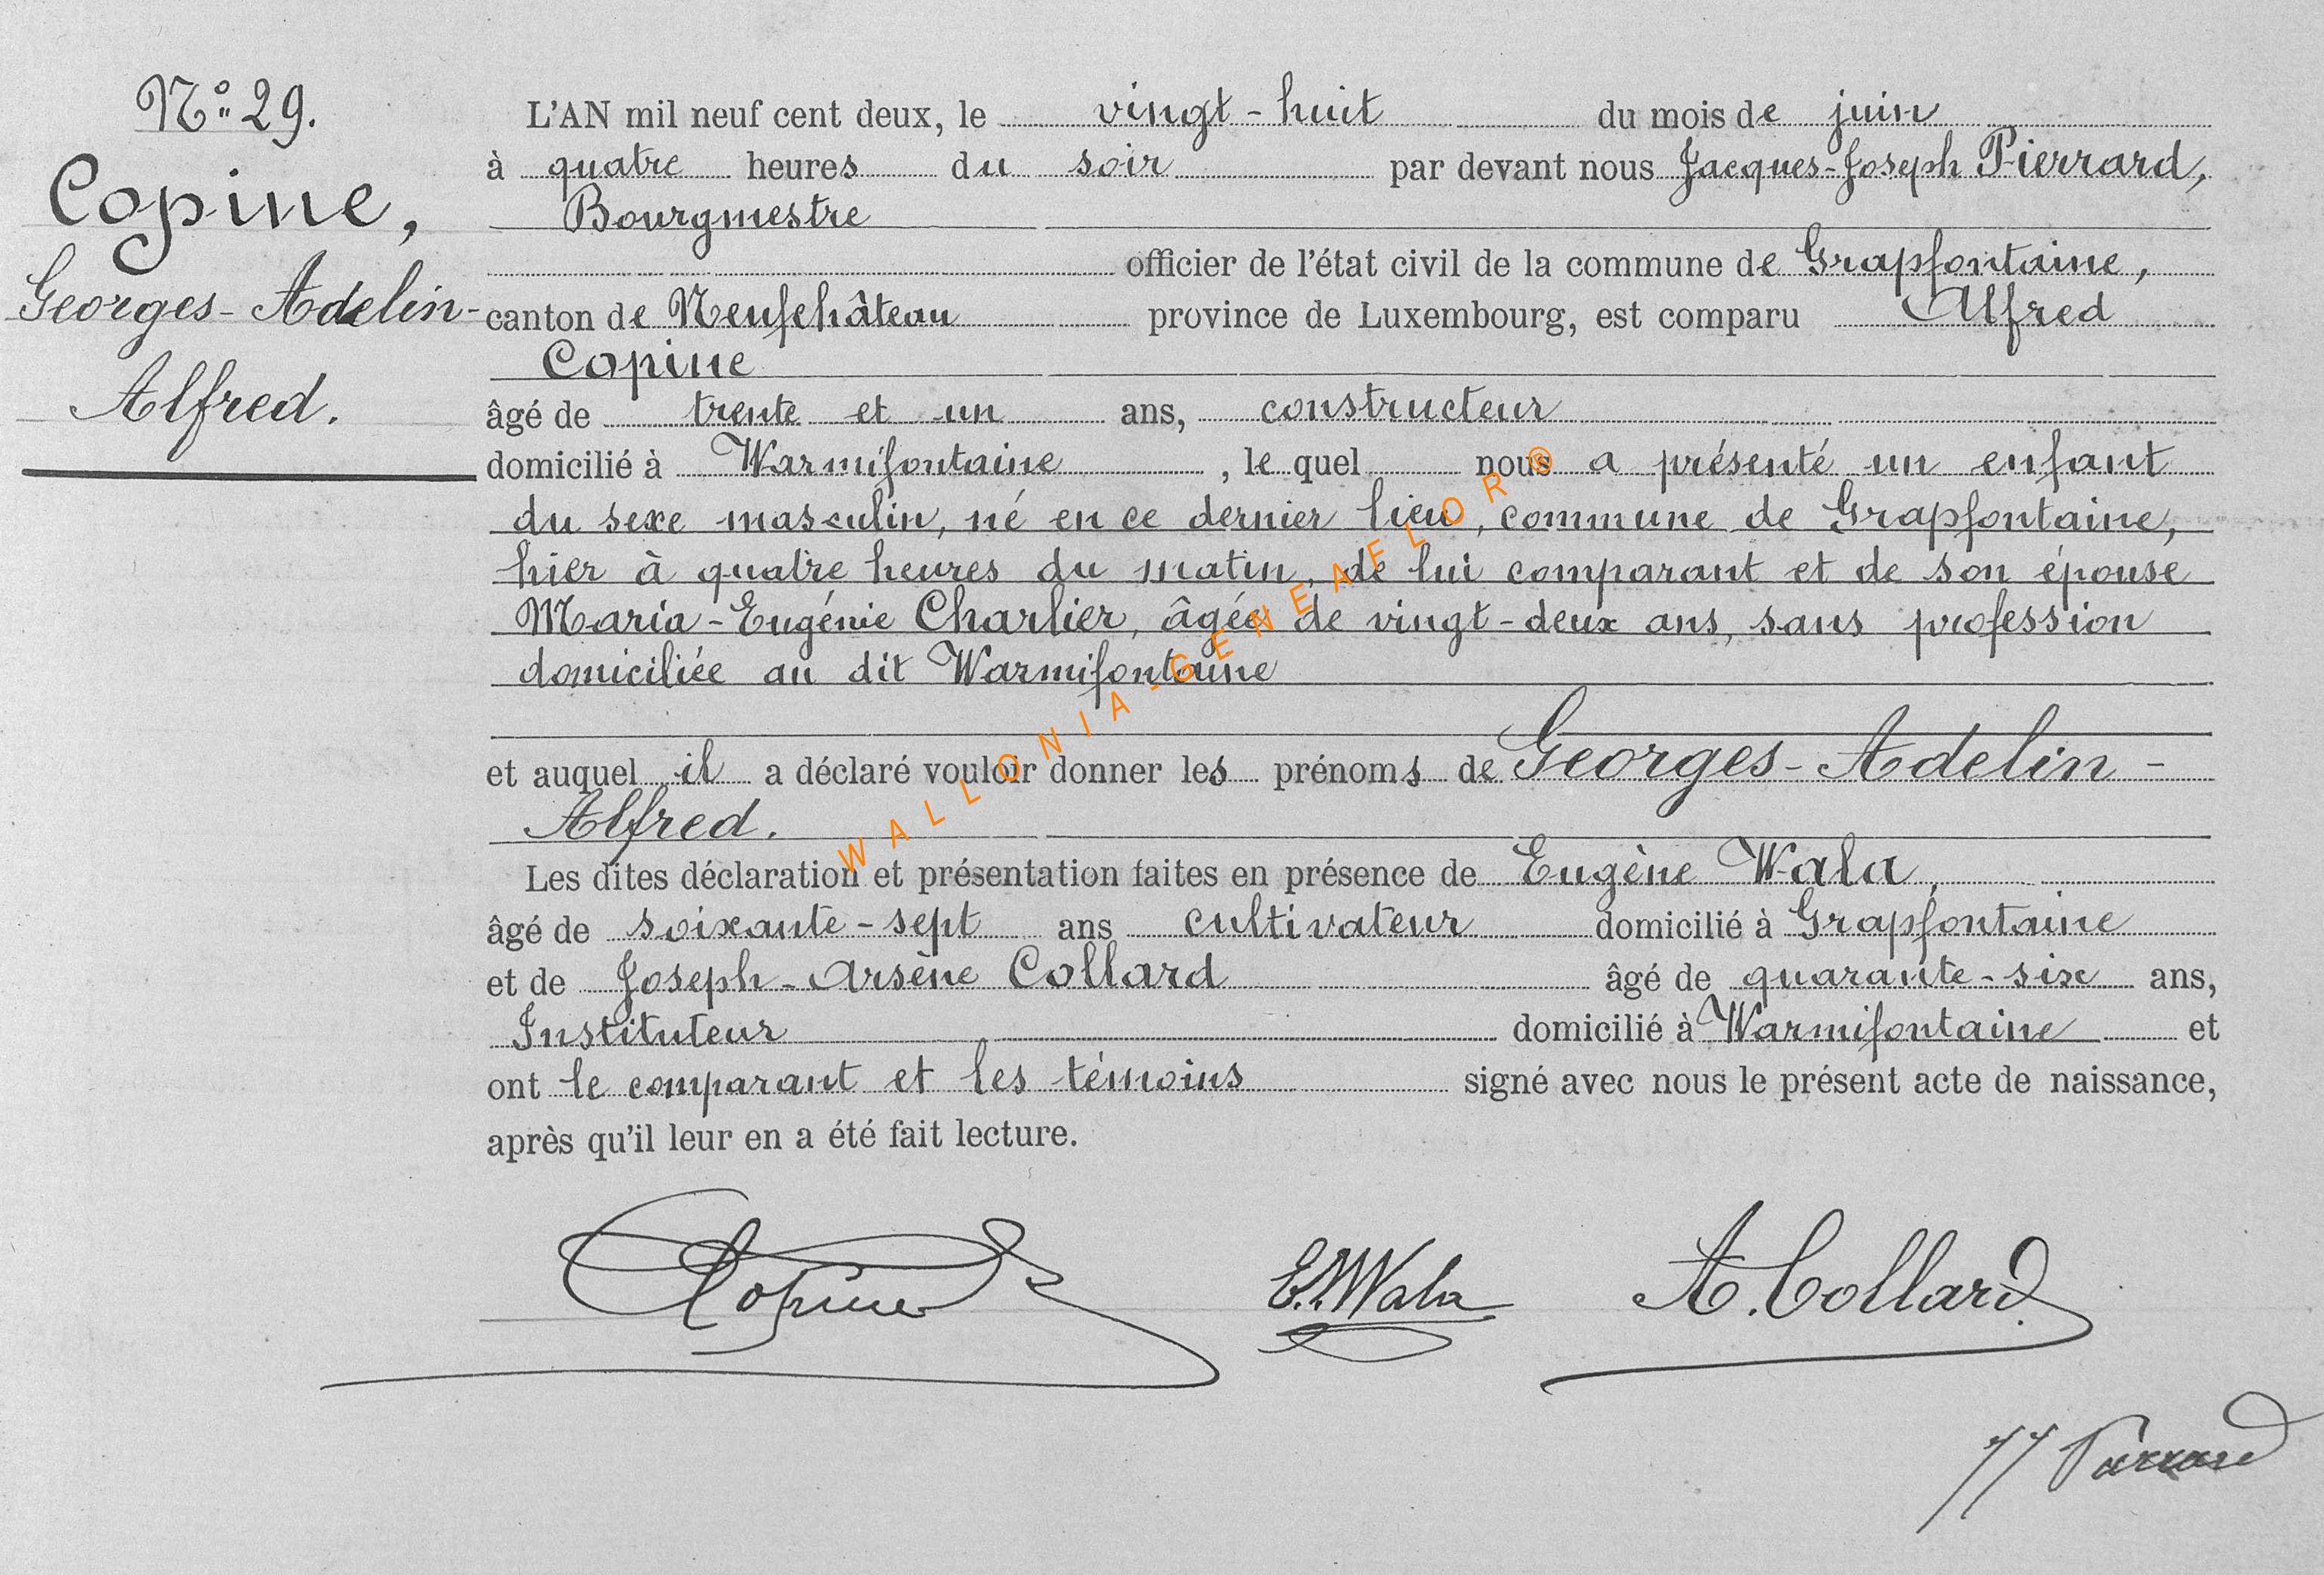 N° 29.
Copine,
Georges-Adelin-
Alfred.
L'AN mil neuf cent deux, le vingt-huit du mois de juin
à quatre heures du soir par devant nous Jacques-Joseph Pierrard,
Bourgmestre
officier de l'état civil de la commune de Grapfontaine,
canton de Neufchâteau province de Luxembourg, est comparu Alfred
Copine
âgé de trente et un ans, constructeur
domicilié à Warmifontaine, le quel nous a présenté un enfant
du sexe masculin, né en ce dernier lieu, commune de Grapfontaine,
hier à quatre heures du matin, de lui comparant et de son épouse
Maria-Eugénie Charlier, âgée de vingt-deux ans, sans profession
domiciliée au dit Warmifontaine
et auquel il a déclaré vouloir donner les prénoms de Georges-Adelin-
Alfred.
Les dites déclaration et présentation faites en présence de Eugène Wala,
âgé de soixante-sept ans cultivateur domicilié à Grapfontaine
et de Joseph-Arsène Collard âgé de quarante-six ans,
Instituteur domicilié à Warmifontaine et
ont le comparant et les témoins signé avec nous le présent acte de naissance,
après qu'il leur en a été fait lecture.
Copine E. Wala A. Collard
JJ Pierrard
WALLONIA-GENEALOR®